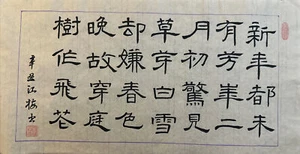 新年都未
有芳華二
月初驚見
草芽白雪
却嫌春色
晚故穿庭
樹作飛花
辛丑江梅书